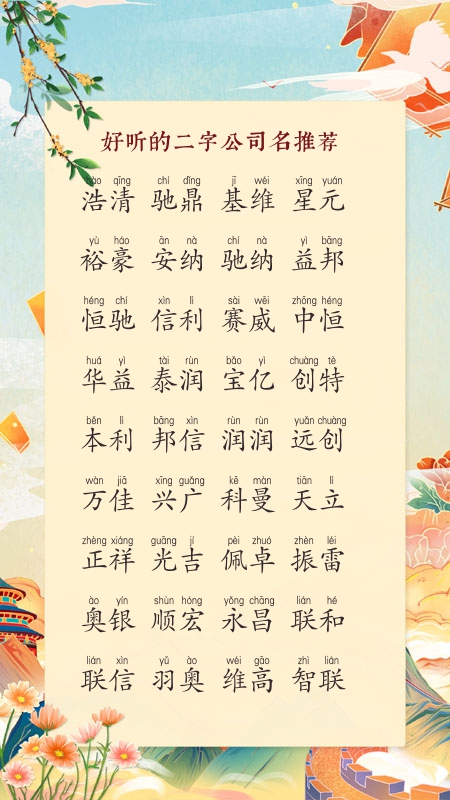 好听的二字公司名推荐
hào qīng chí dǐng jī wéi xīng yuán
浩清 驰鼎 基维 星元
yù háo ān nà chí nà yì bāng
裕豪 安纳 驰纳 益邦
héng chí xìn lì sài wēi zhōng héng
恒驰 信利 赛威 中恒
huá yì tài rùn bǎo yì chuàng tè
华益 泰润 宝亿 创特
běn lì bāng xìn rùn rùn yuǎn chuàng
本利 邦信 润润 远创
wàn jiā xīng guǎng kē màn tiān lì
万佳 兴广 科曼 天立
zhèng xiáng guāng jí pèi zhuó zhèn léi
正祥 光吉 佩卓 振雷
ào yín shùn hóng yǒng chāng lián hé
奥银 顺宏 永昌 联和
lián xìn yǔ ào wéi gāo zhì lián
联信 羽奥 维高 智联